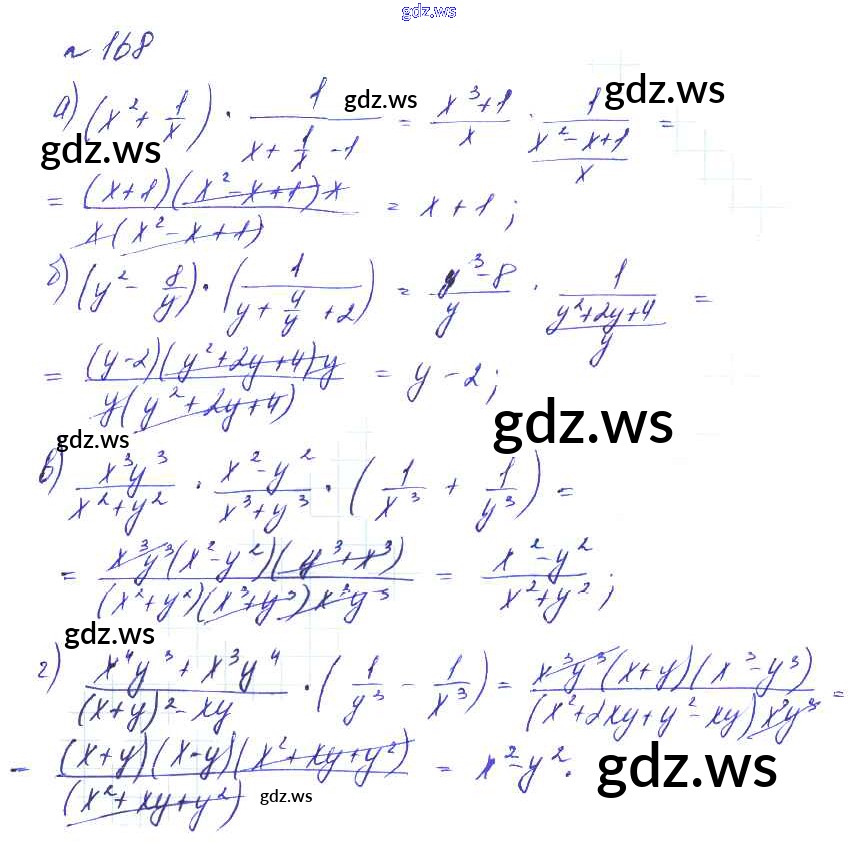 gdz.ws
№ 168
а) (x² + 1/x) · 1/(x + 1/x - 1) = (x³+1)/x · 1/((x² - x + 1)/x) =
gdz.ws gdz.ws gdz.ws
= ((x+1)(x² - x + 1)x)/(x(x² - x + 1)) = x + 1;
б) (y² - 8/y) · (1/(y + 4/y + 2)) = (y³ - 8)/y · 1/((y²+2y+4)/y) =
= ((y-2)(y² + 2y + 4)y)/(y(y² + 2y + 4)) = y - 2;
gdz.ws gdz.ws
в) x³y³/(x² + y²) · (x² - y²)/(x³ + y³) · (1/x³ + 1/y³) =
= (x³y³(x² - y²)(y³ + x³))/((x² + y²)(x³ + y³)x³y³) = (x² - y²)/(x² + y²);
gdz.ws
г) (x⁴y³ + x³y⁴)/((x+y)² - xy) · (1/y³ - 1/x³) = (x³y³(x+y)(x³ - y³))/((x² + 2xy + y² - xy)x³y³) =
= ((x+y)(x-y)(x² + xy + y²))/((x² + xy + y²)) = x² - y².
gdz.ws gdz.ws